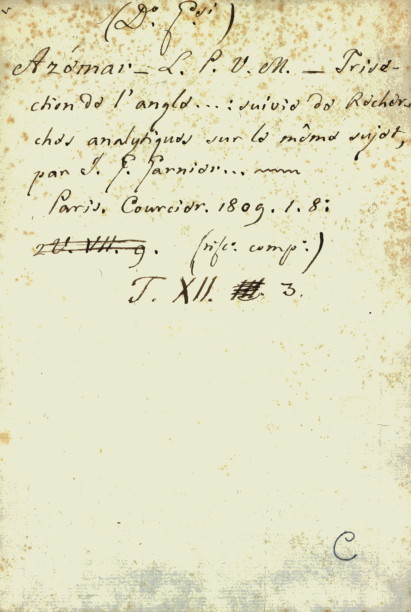 (Do. Gesi)
Azémar – L. P. V. M. – Trise-
ction de l'angle...: suivie de Recher-
ches analytiques sur le même sujet,
par J. G. Garnier...
Paris. Courcier. 1809. 1. 8:
2 U. VII. 9. (rifc. comp.)
T. XII. 3.
C